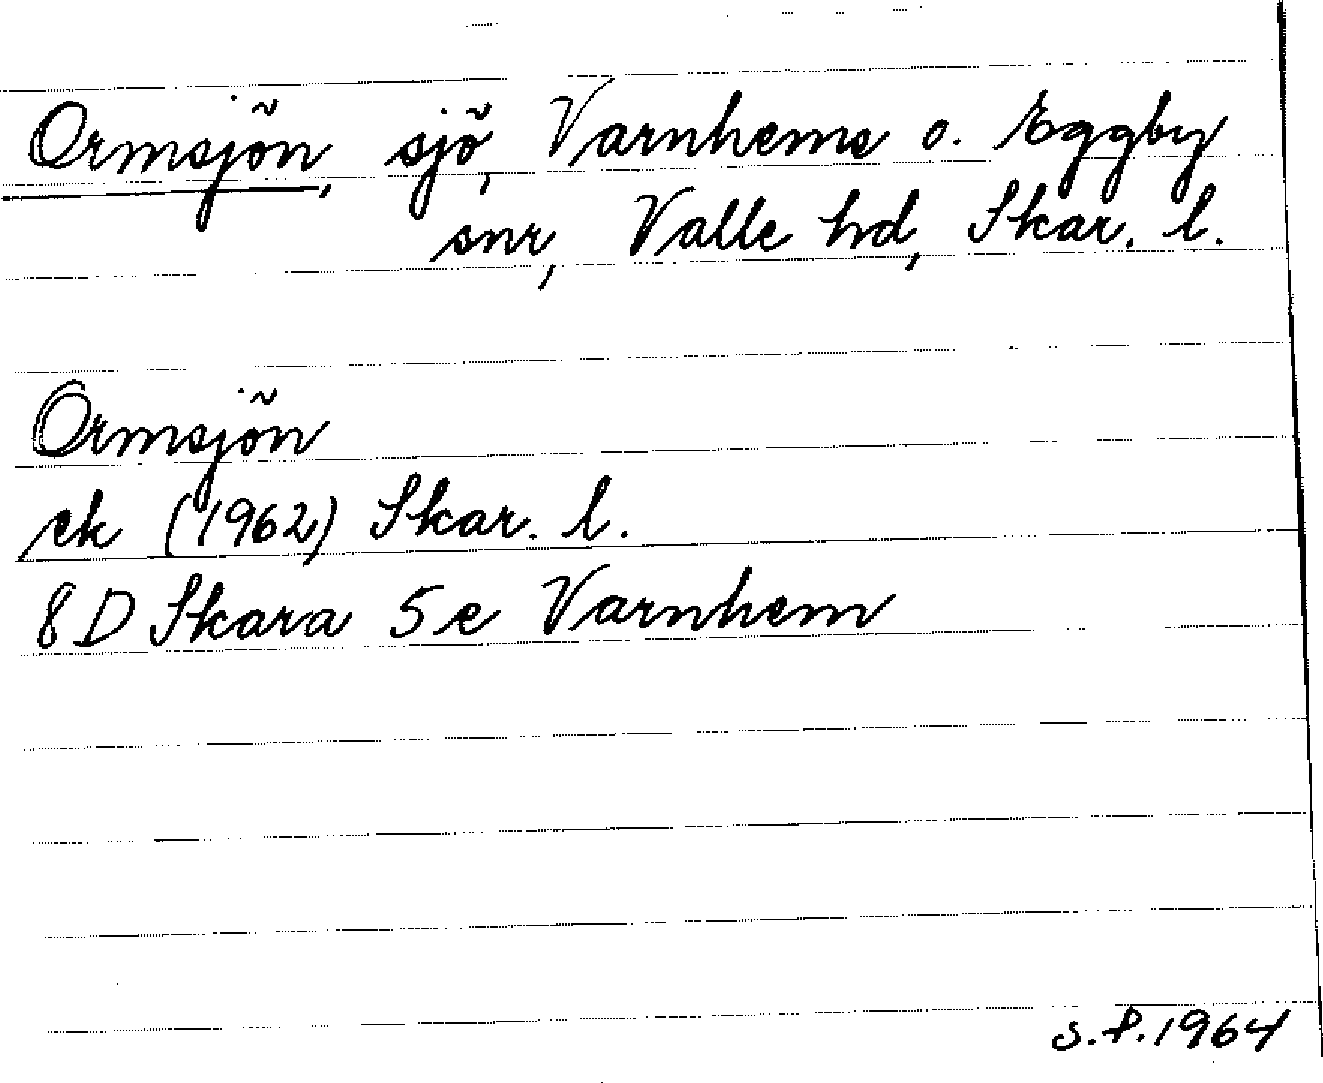 Ormsjön, sjö, Varnhems o. Eggby
snr, Valle hd, Skar. l.
Ormsjön
ek (1962) Skar. l.
8 D Skara 5 e Varnhem
S.F. 1964